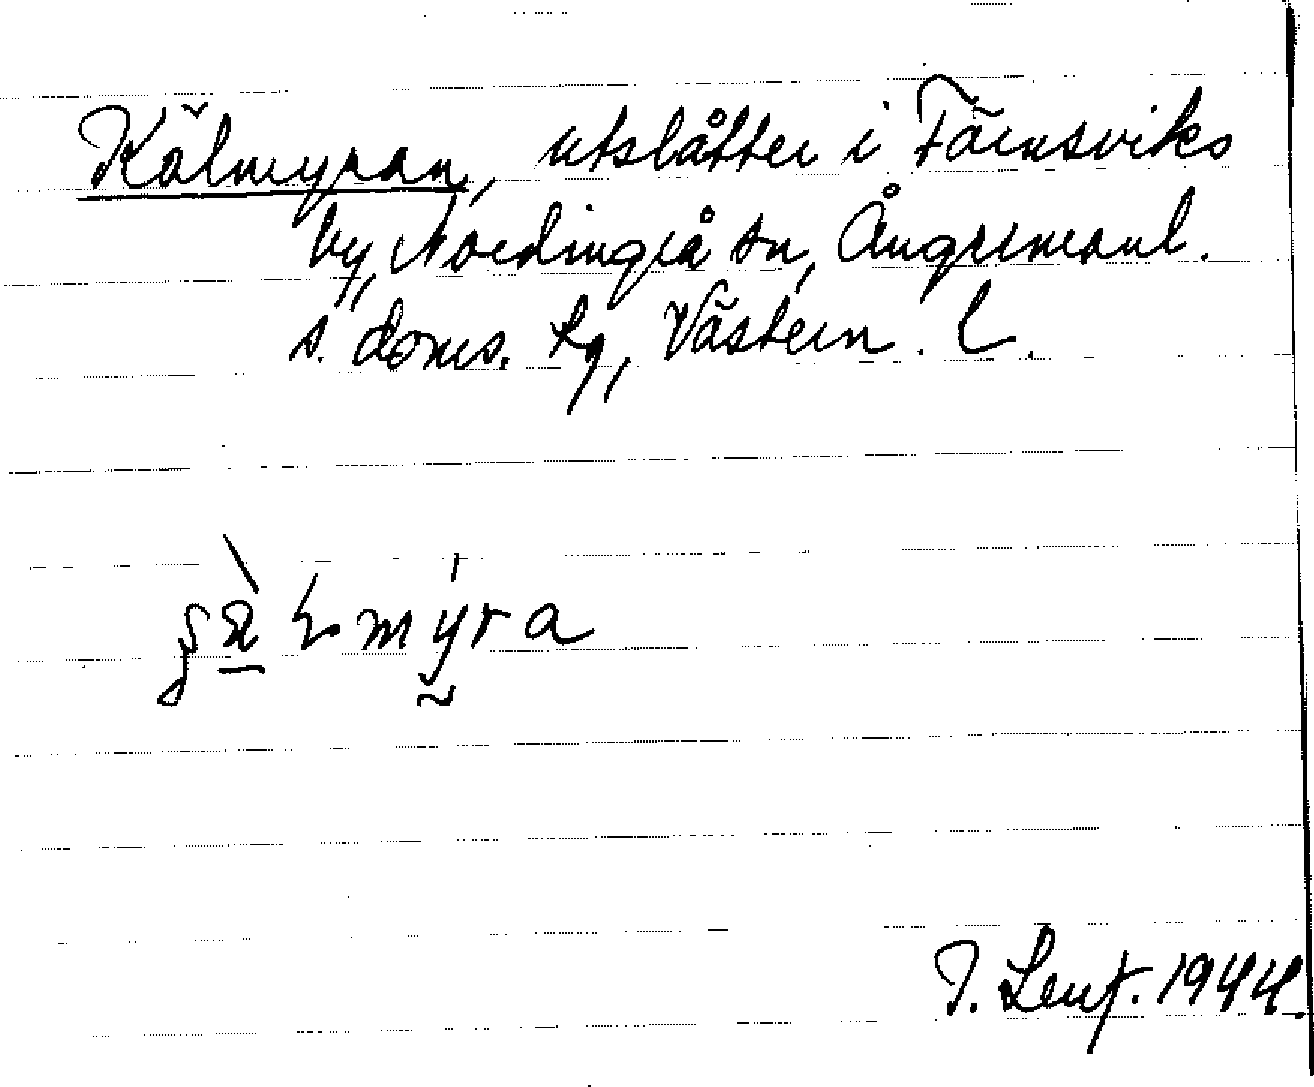 Kälmyran, utslåtter i Färnsviks
by, Nordingrå sn, Ångermanl.
s. doms. hg, Västern. L.
J. Lenf. 1944.